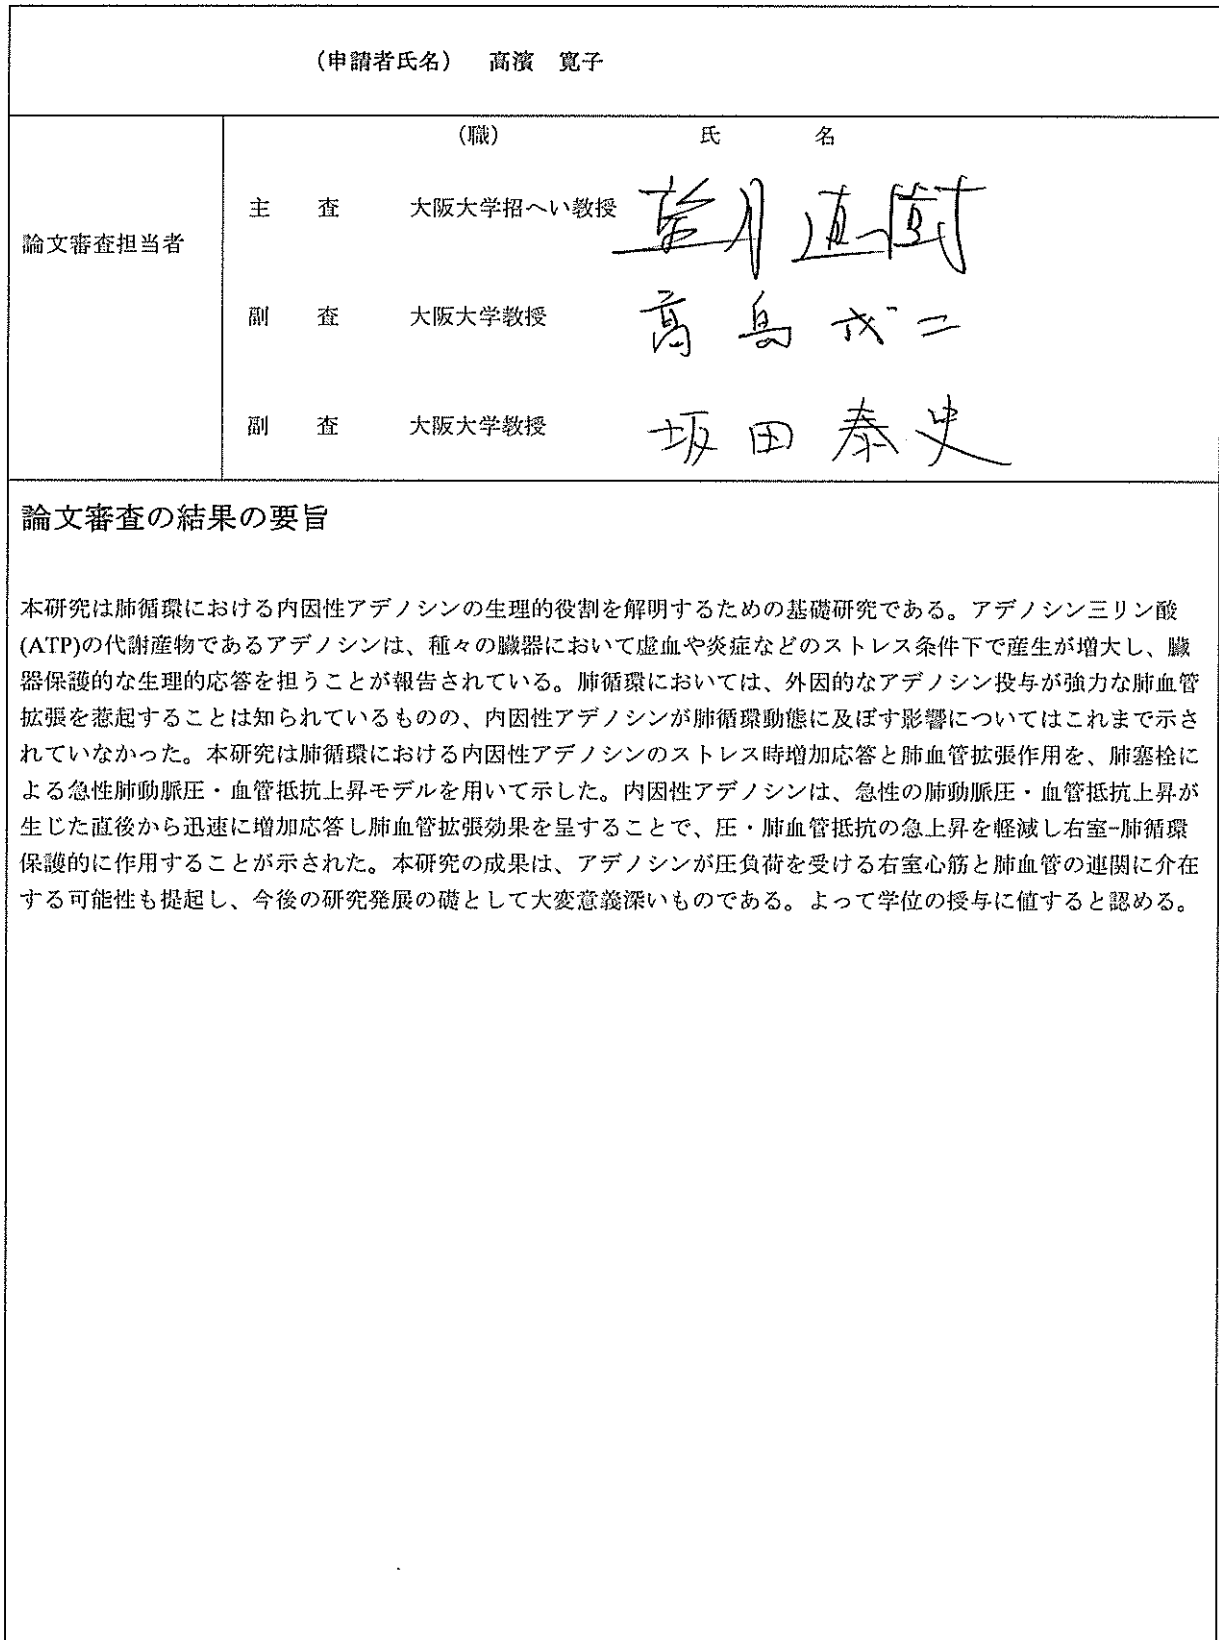 (申請者氏名) 髙濱 寛子
(職) 氏 名
論文審査担当者
主 査 大阪大学招へい教授 直樹
副 査 大阪大学教授 高島成二
副 査 大阪大学教授 坂田泰史
論文審査の結果の要旨
本研究は肺循環における内因性アデノシンの生理的役割を解明するための基礎研究である。アデノシン三リン酸
(ATP)の代謝産物であるアデノシンは、種々の臓器において虚血や炎症などのストレス条件下で産生が増大し、臓
器保護的な生理的応答を担うことが報告されている。肺循環においては、外因的なアデノシン投与が強力な肺血管
拡張を惹起することは知られているものの、内因性アデノシンが肺循環動態に及ぼす影響についてはこれまで示さ
れていなかった。本研究は肺循環における内因性アデノシンのストレス時増加応答と肺血管拡張作用を、肺塞栓に
よる急性肺動脈圧・血管抵抗上昇モデルを用いて示した。内因性アデノシンは、急性の肺動脈圧・血管抵抗上昇が
生じた直後から迅速に増加応答し肺血管拡張効果を呈することで、圧・肺血管抵抗の急上昇を軽減し右室-肺循環
保護的に作用することが示された。本研究の成果は、アデノシンが圧負荷を受ける右室心筋と肺血管の連関に介在
する可能性も提起し、今後の研究発展の礎として大変意義深いものである。よって学位の授与に値すると認める。